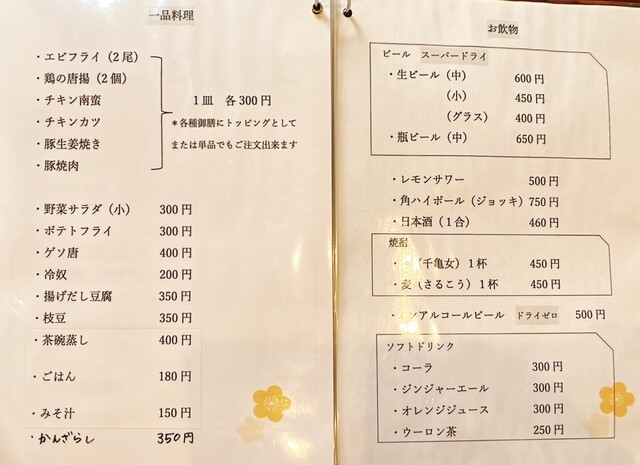 一品料理
・エビフライ（2尾）
・鶏の唐揚（2個）
・チキン南蛮
・チキンカツ
・豚生姜焼き
・豚焼肉
1皿 各300円
＊各種御膳にトッピングとして
または単品でもご注文出来ます
・野菜サラダ（小） 300円
・ポテトフライ 300円
・ゲソ唐 400円
・冷奴 200円
・揚げだし豆腐 350円
・枝豆 350円
・茶碗蒸し 400円
・ごはん 180円
・みそ汁 150円
・かんざらし 350円
お飲物
ビール スーパードライ
・生ビール（中） 600円
（小） 450円
（グラス） 400円
・瓶ビール（中） 650円
・レモンサワー 500円
・角ハイボール（ジョッキ）750円
・日本酒（1合） 460円
焼酎
（千亀女）1杯 450円
・麦（さるこう）1杯 450円
・ノンアルコールビール ドライゼロ 500円
ソフトドリンク
・コーラ 300円
・ジンジャーエール 300円
・オレンジジュース 300円
・ウーロン茶 250円